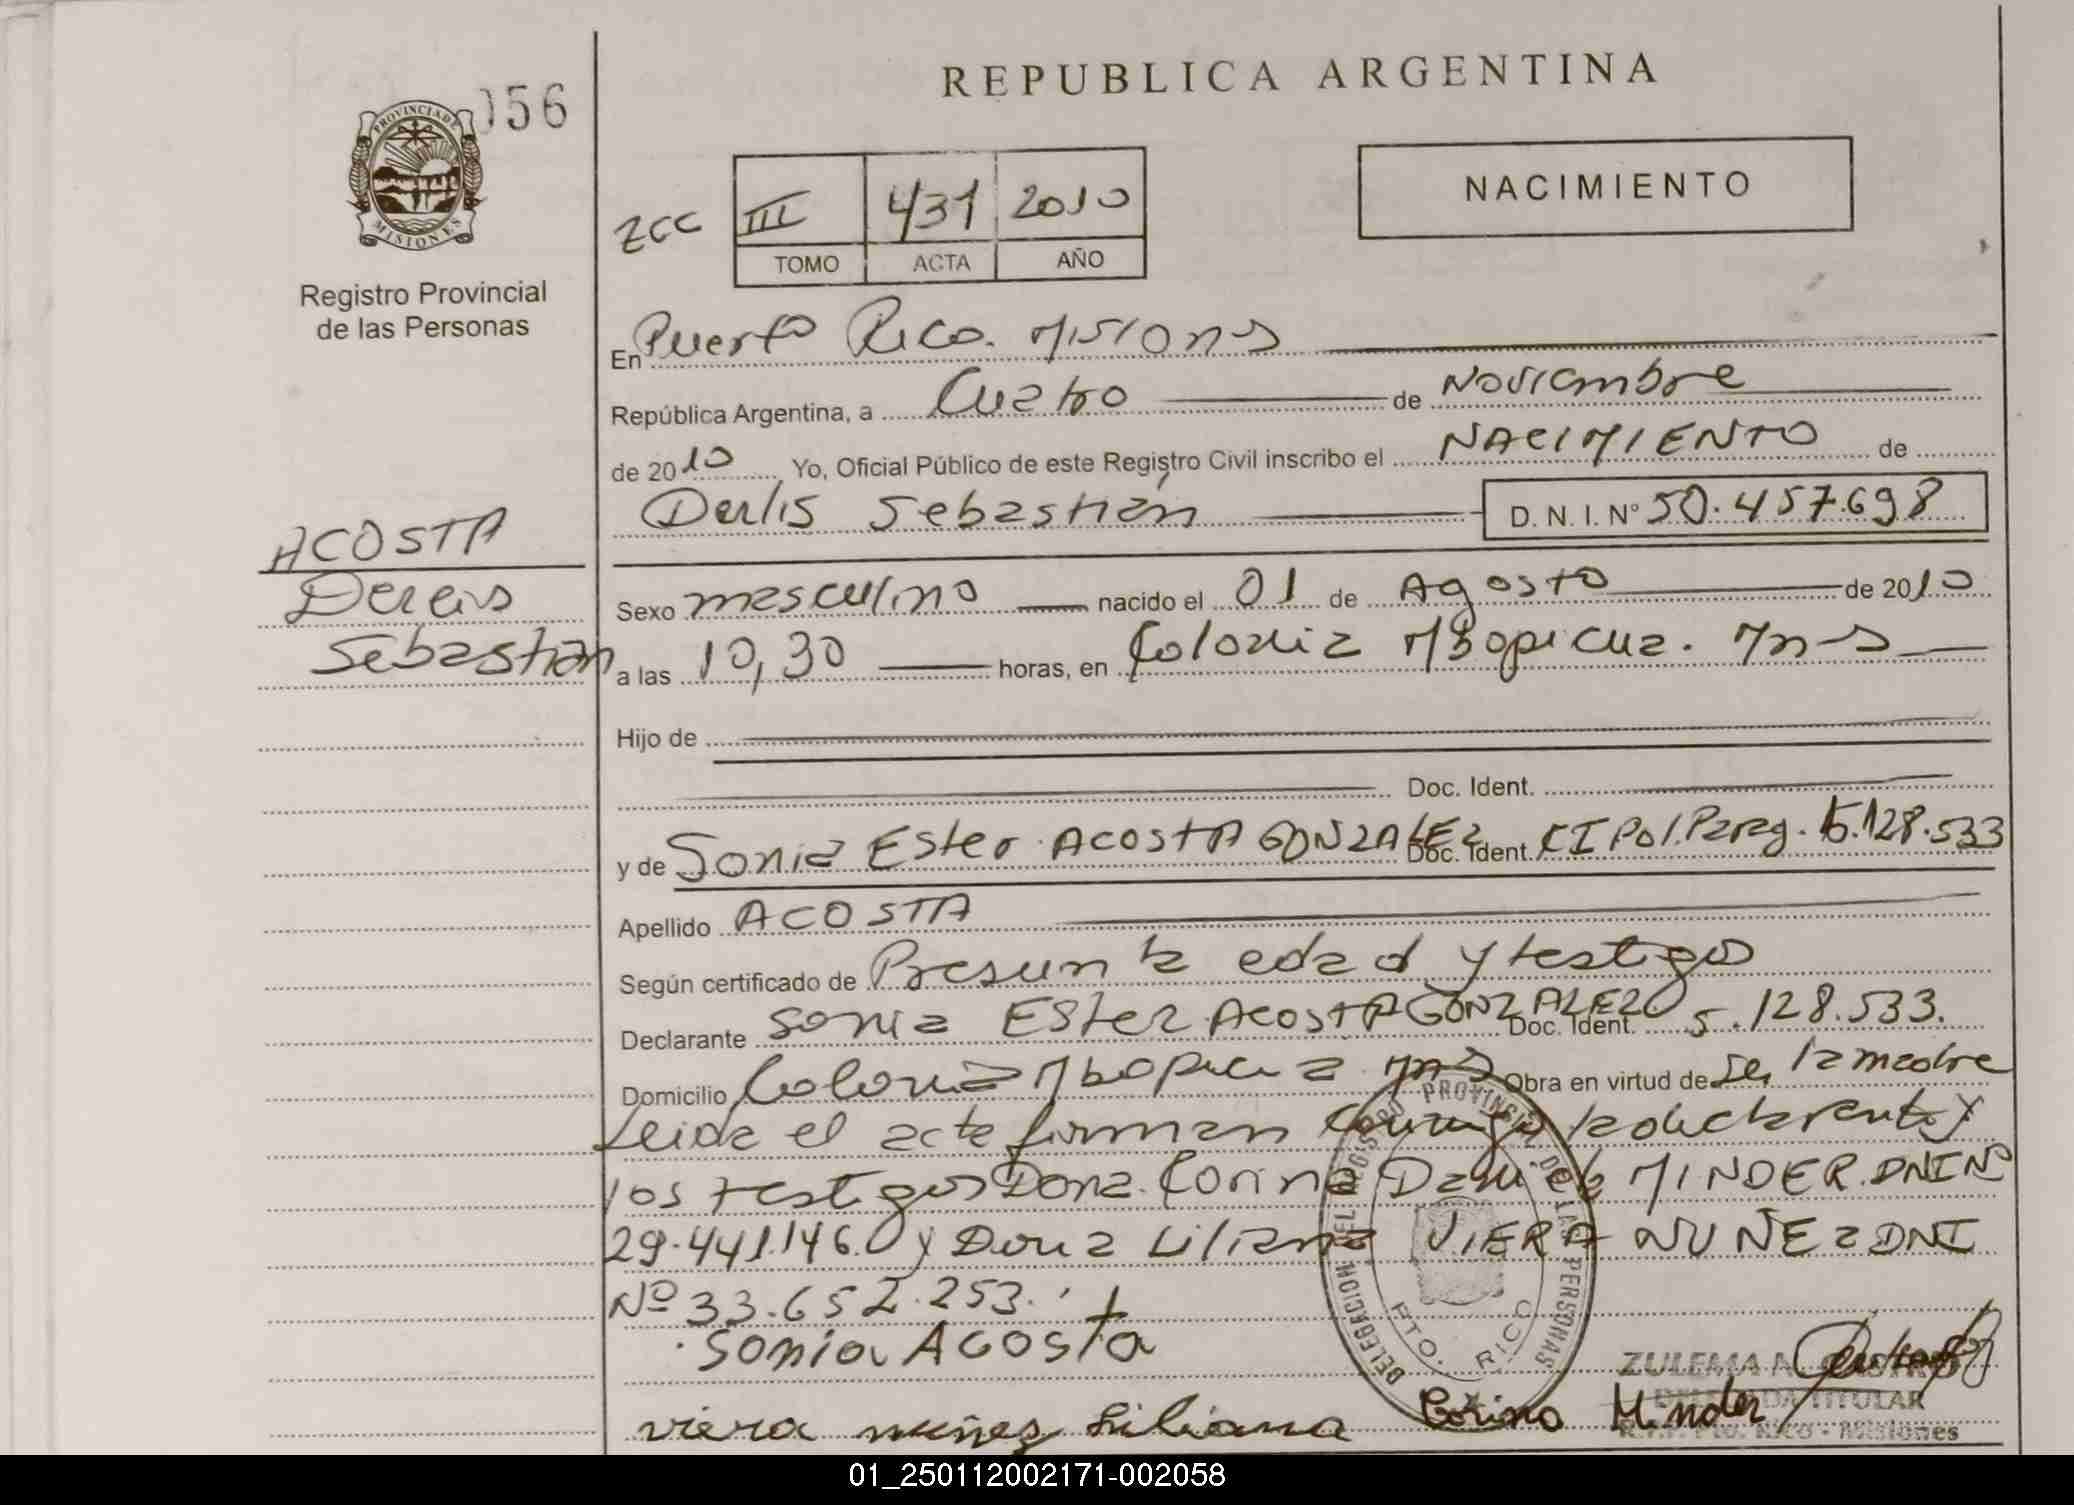 REPUBLICA ARGENTINA
056
PROVINCIA DE MISIONES
Registro Provincial
de las Personas
zcc III 431 2010
TOMO ACTA AÑO
NACIMIENTO
En Puerto Rico. Misions
República Argentina, a Cuatro de Noviembre
de 2010 Yo, Oficial Público de este Registro Civil inscribo el NACIMIENTO de
Derlis Sebastián D. N. I. Nº 50.457.698
ACOSTA
Derlis
Sebastian
Sexo masculino nacido el 01 de Agosto de 2010
a las 10,30 horas, en Colonia Mbopicua. Mns
Hijo de
Doc. Ident.
y de Sonia Ester ACOSTA GONZALEZ Doc. Ident. CI Pol. Parag. 5.128.533
Apellido ACOSTA
Según certificado de Presunta edad y testigos
Declarante Sonia Ester ACOSTA GONZALEZ Doc. Ident. 5.128.533.
Domicilio Colonia Mbopicua Mns Obra en virtud de Ser la madre
Leida el acta firman conmigo la declarante y
los testigos Dona Corina Daniela MINDER. DNI Nº
29.441.146. y Dona Liliana VIERA NUÑEZ DNI
Nº 33.652.253.
Sonia Acosta
viera nuñez Liliana Corina Minder
REGISTRO PROVINCIAL DE LAS PERSONAS
DELEGACION
PTO. RICO
ZULEMA N.
DELEGADA TITULAR
R.P.P. Pto. Rico - Misiones
01_250112002171-002058